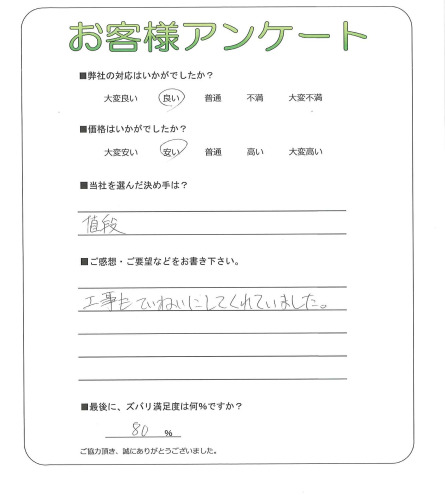 お客様アンケート
■弊社の対応はいかがでしたか？
大変良い 良い 普通 不満 大変不満
■価格はいかがでしたか？
大変安い 安い 普通 高い 大変高い
■当社を選んだ決め手は？
値段
■ご感想・ご要望などをお書き下さい。
工事もていねいにしてくれていました。
■最後に、ズバリ満足度は何%ですか？
80 %
ご協力頂き、誠にありがとうございました。